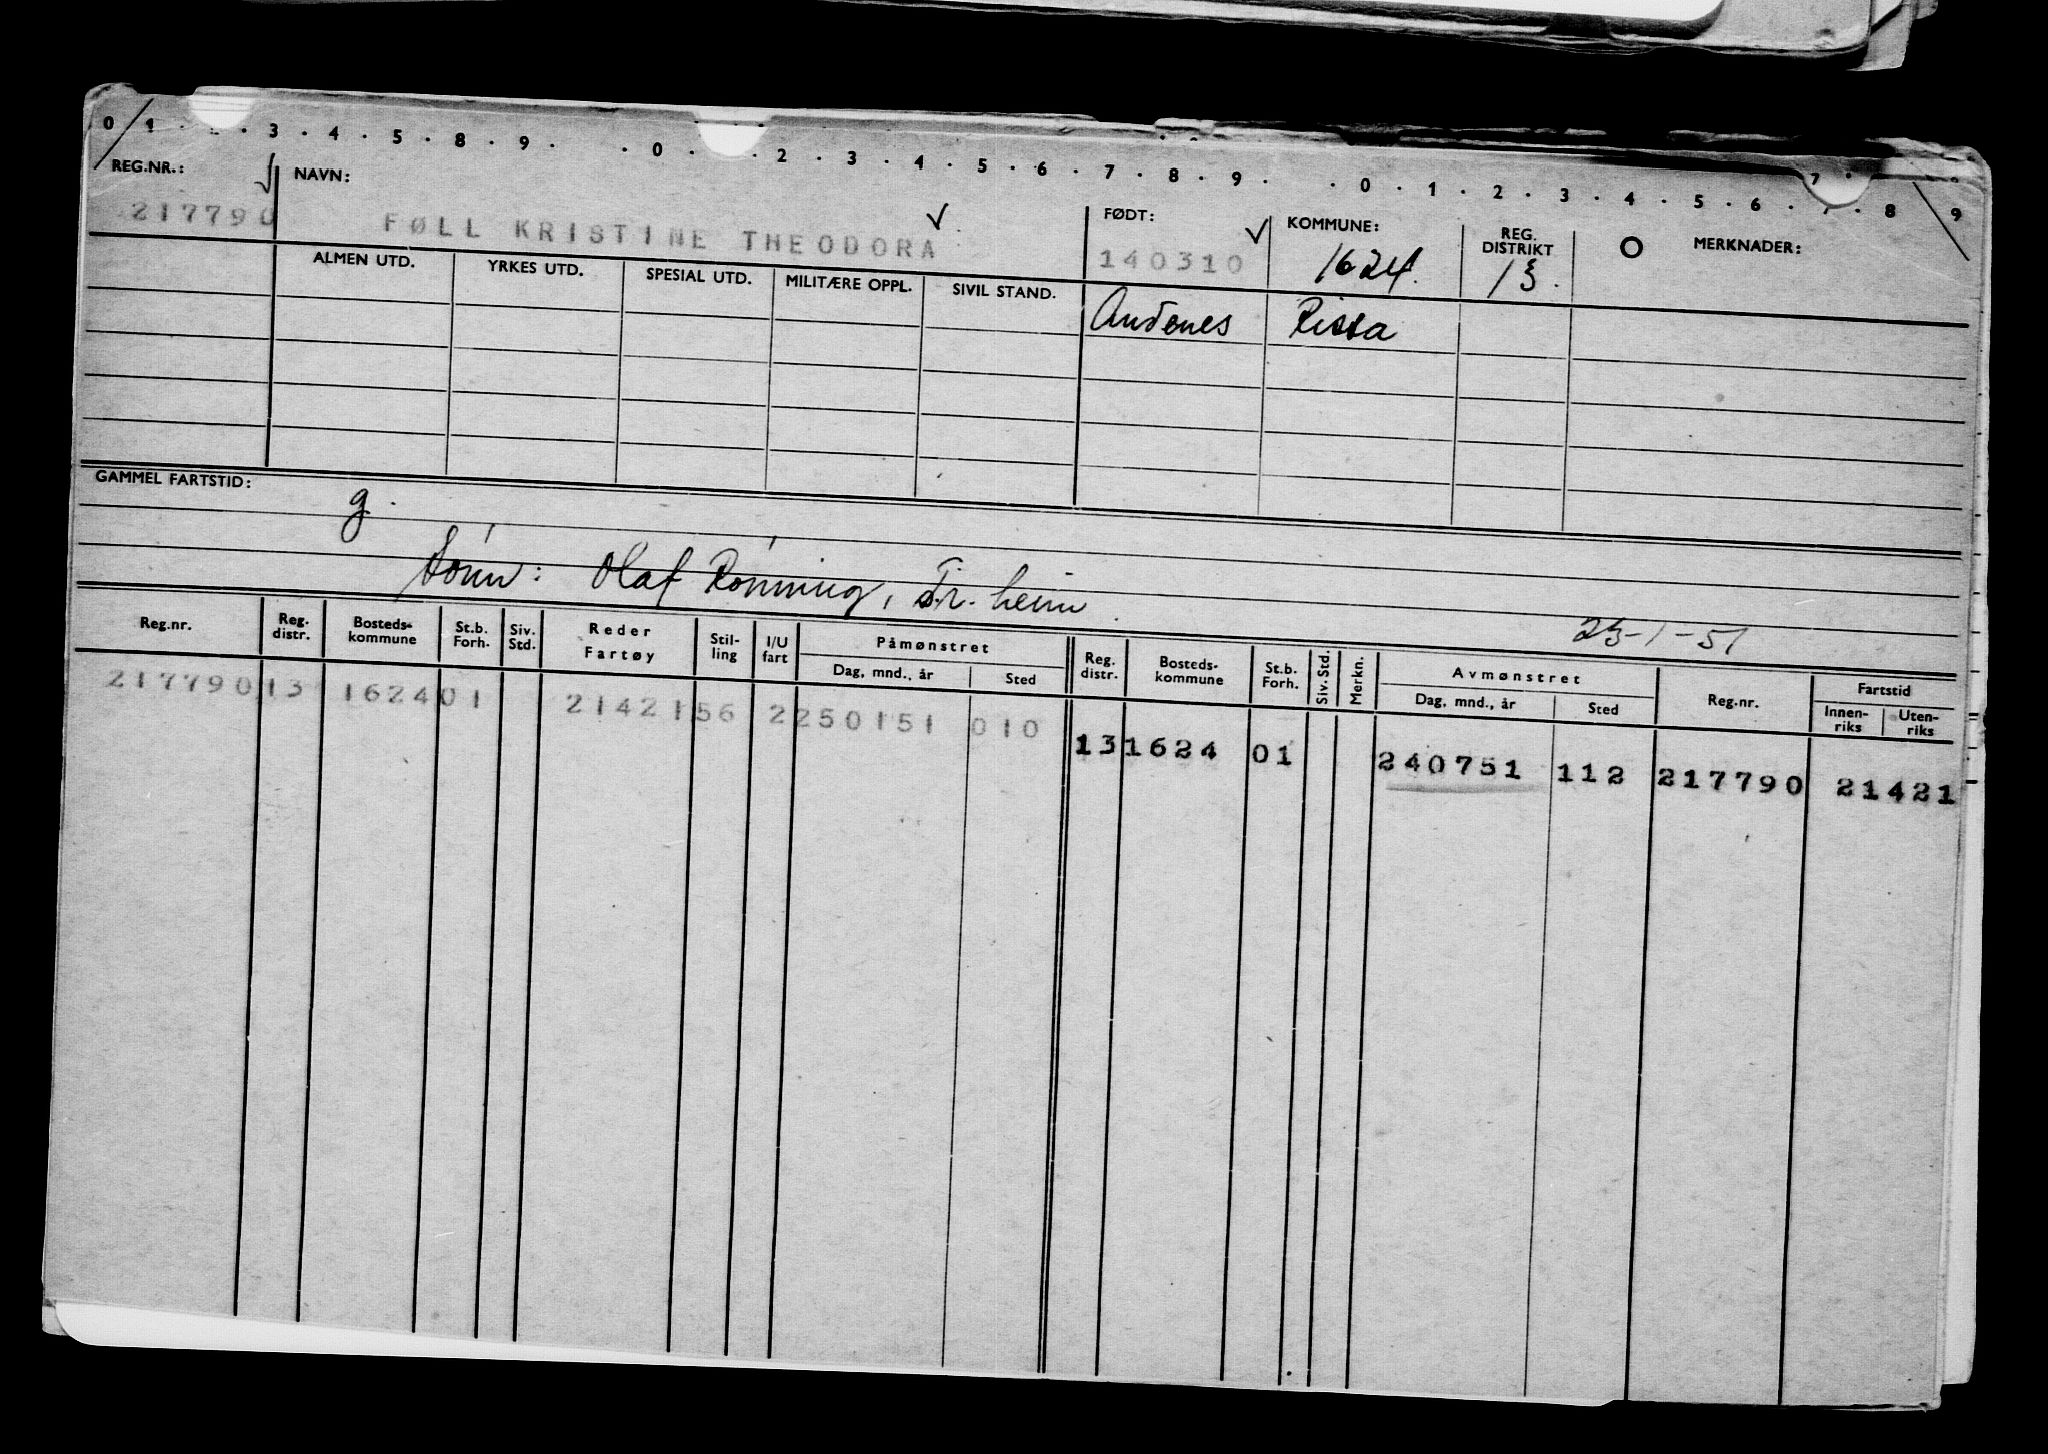 0 1 . . 3 . 4 . 5 . 8 . 9 . . 0 . . 2 . 3 . 4 . 5 . 6 . 7 . 8 . 9 . . 0 . 1 . 2 . 3 . 4 . 5 . 6 . 7 . 8 9
REG.NR.: NAVN: FØDT: KOMMUNE: REG. DISTRIKT MERKNADER:
217790 FØLL KRISTINE THEODORA 140310 1624. 13.
ALMEN UTD. YRKES UTD. SPESIAL UTD. MILITÆRE OPPL. SIVIL STAND. Andenes Rissa
GAMMEL FARTSTID:
g.
Sønn: Olaf Rønning, Tr.heim
23-1-51
Reg.nr. Reg. distr. Bosteds- kommune St.b. Forh. Siv. Std. Reder Fartøy Stil- ling I/U fart Påmønstret Dag, mnd., år Sted Reg. distr. Bosteds- kommune St.b. Forh. Siv. Std. Merkn. Avmønstret Dag, mnd., år Sted Reg.nr. Fartstid Innen- riks Uten- riks
217790 13 1624 01 21421 56 2 250151 010
13 1624 01 240751 112 217790 21421